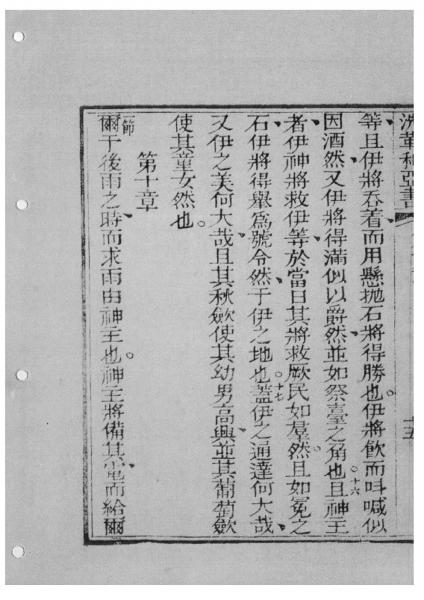 等且伊將吞着而用懸拋石將得勝也。伊將飲而呌喊似
因酒然又伊將得滿似以爵然並如祭臺之角也。十六且神主
者伊神將救伊等於當日其將救厥民如羣然。且如冕之
石伊將得舉為號令然于伊之地也。十七蓋伊之通達何大哉
又伊之美何大哉且其秋歛使其幼男高興並其葡萄歛
使其童女然也。
第十章
一節爾于後雨之時而求雨由神主也。神主將備其而給爾